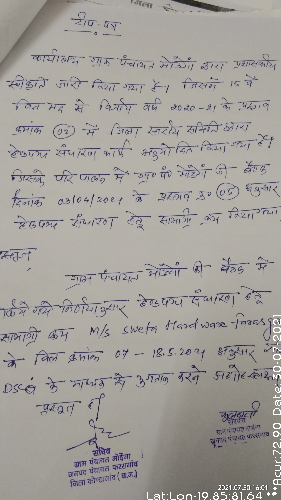 टीप-पत्र
कार्यालय ग्राम पंचायत द्वारा प्रशासकीय
स्वीकृति जारी किया गया है। जिसमें 15 वें
वित्त मद से वित्तीय वर्ष 2020-21 के प्रस्ताव
क्रमांक (02) में जिला स्तरीय समिति द्वारा
हेण्डपम्प संधारण कार्य अनुमोदित किया गया है।
जिसके परिपालन में की बैठक
दिनांक 03/04/2021 के प्रस्ताव क्र0 (05) अनुसार
हेण्डपम्प संधारण हेतु सामाग्री क्रय किया गया
ग्राम पंचायत की बैठक में
लिये गये निर्णयानुसार हेण्डपम्प संधारण हेतु
सामाग्री क्रय M/S Sweta Hardware
के बिल क्रमांक 07 - 18.5.2021 अनुसार
DSC के माध्यम से भुगतान करने
प्रस्तुत है
सचिव
ग्राम पंचायत
जनपद पंचायत फरसगांव
जिला कोण्डागांव (छ.ग.)
सरपंच
2021.07.30 16:01
Lat:Lon-19.85:81.64
Acur:72.90 Date:30.07.2021